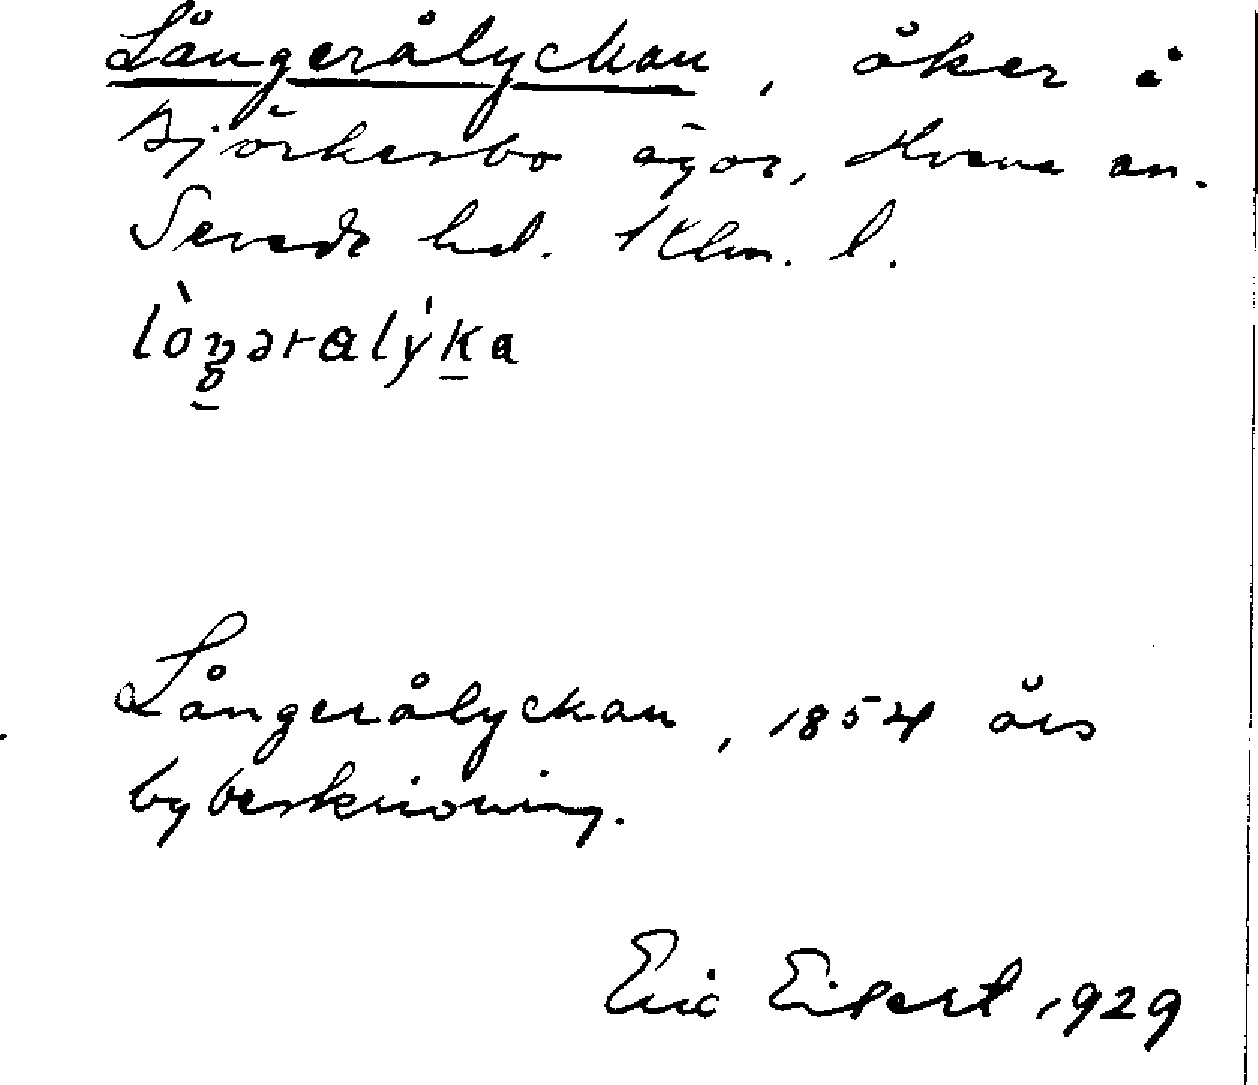 Långerålyckan, åker i
Björkesbo ägor, Hvena sn.
Sevede hd. Klm. l.
lòŋəralýka
Långerålyckan, 1854 års
bybeskrivning.
Eric Elfert 1929